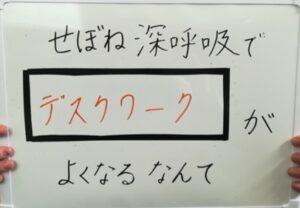 せぼね深呼吸で
デスクワークが
よくなるなんて